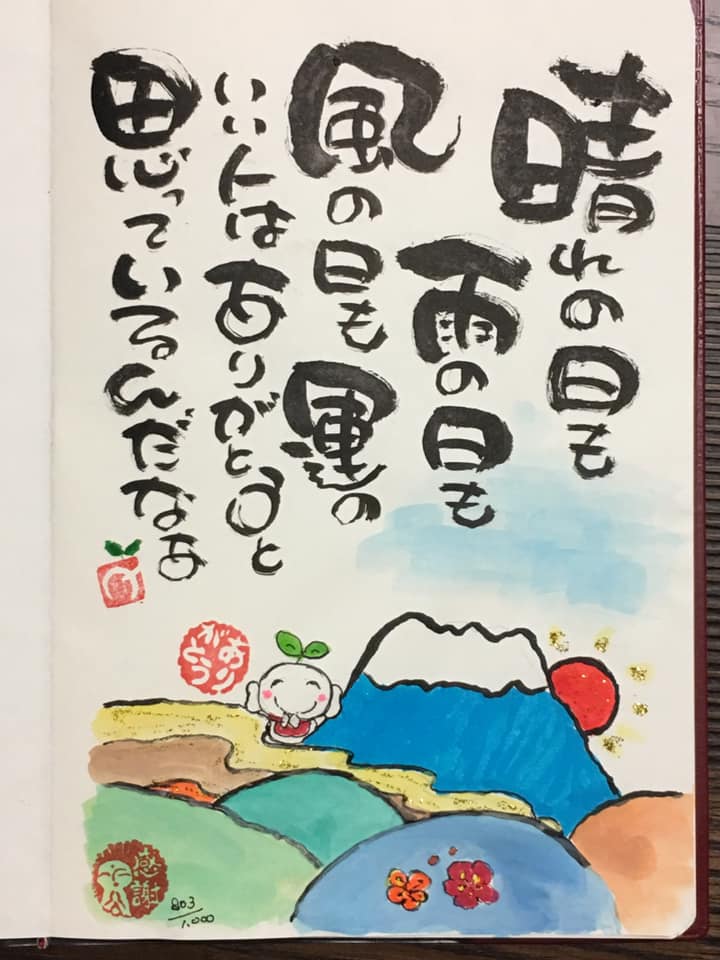 晴れの日も
雨の日も
風の日も運の
いい人はありがとうと
思っているんだなあ
ありがとう
感謝
803/1,000